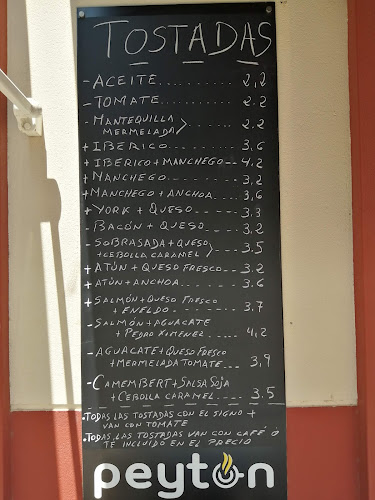 TOSTADAS
- ACEITE........... 2,2
- TOMATE.......... 2.2
- MANTEQUILLA
MERMELADA > ........ 2.2
+ IBERICO......... 3,6
+ IBERICO+MANCHEGO-- 4,2
+ MANCHEGO........ 3,2
+ MANCHEGO + ANCHOA... 3,6
+ YORK + QUESO ----- 3,3
- BACÓN + QUESO.... 3.2
- SOBRASADA + QUESO
+ CEBOLLA CARAMEL > --- 3.5
+ ATÚN + QUESO FRESCO... 3.2
+ ATÚN + ANCHOA..... 3.6
+ SALMÓN + QUESO FRESCO
+ ENELDO...... 3,7
- SALMÓN + AGUACATE
+ PEDRO XIMENEZ --- 4,2
- AGUACATE + QUESO FRESCO
+ MERMELADA TOMATE --- 3,9
- CAMEMBERT + SALSA SOJA
+ CEBOLLA CARAMEL.... 3.5
• TODAS LAS TOSTADAS CON EL SIGNO +
VAN CON TOMATE
• TODAS LAS TOSTADAS VAN CON CAFÉ Ó
TE INCLUIDO EN EL PRECIO
peyton